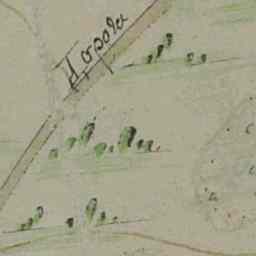 Дорога